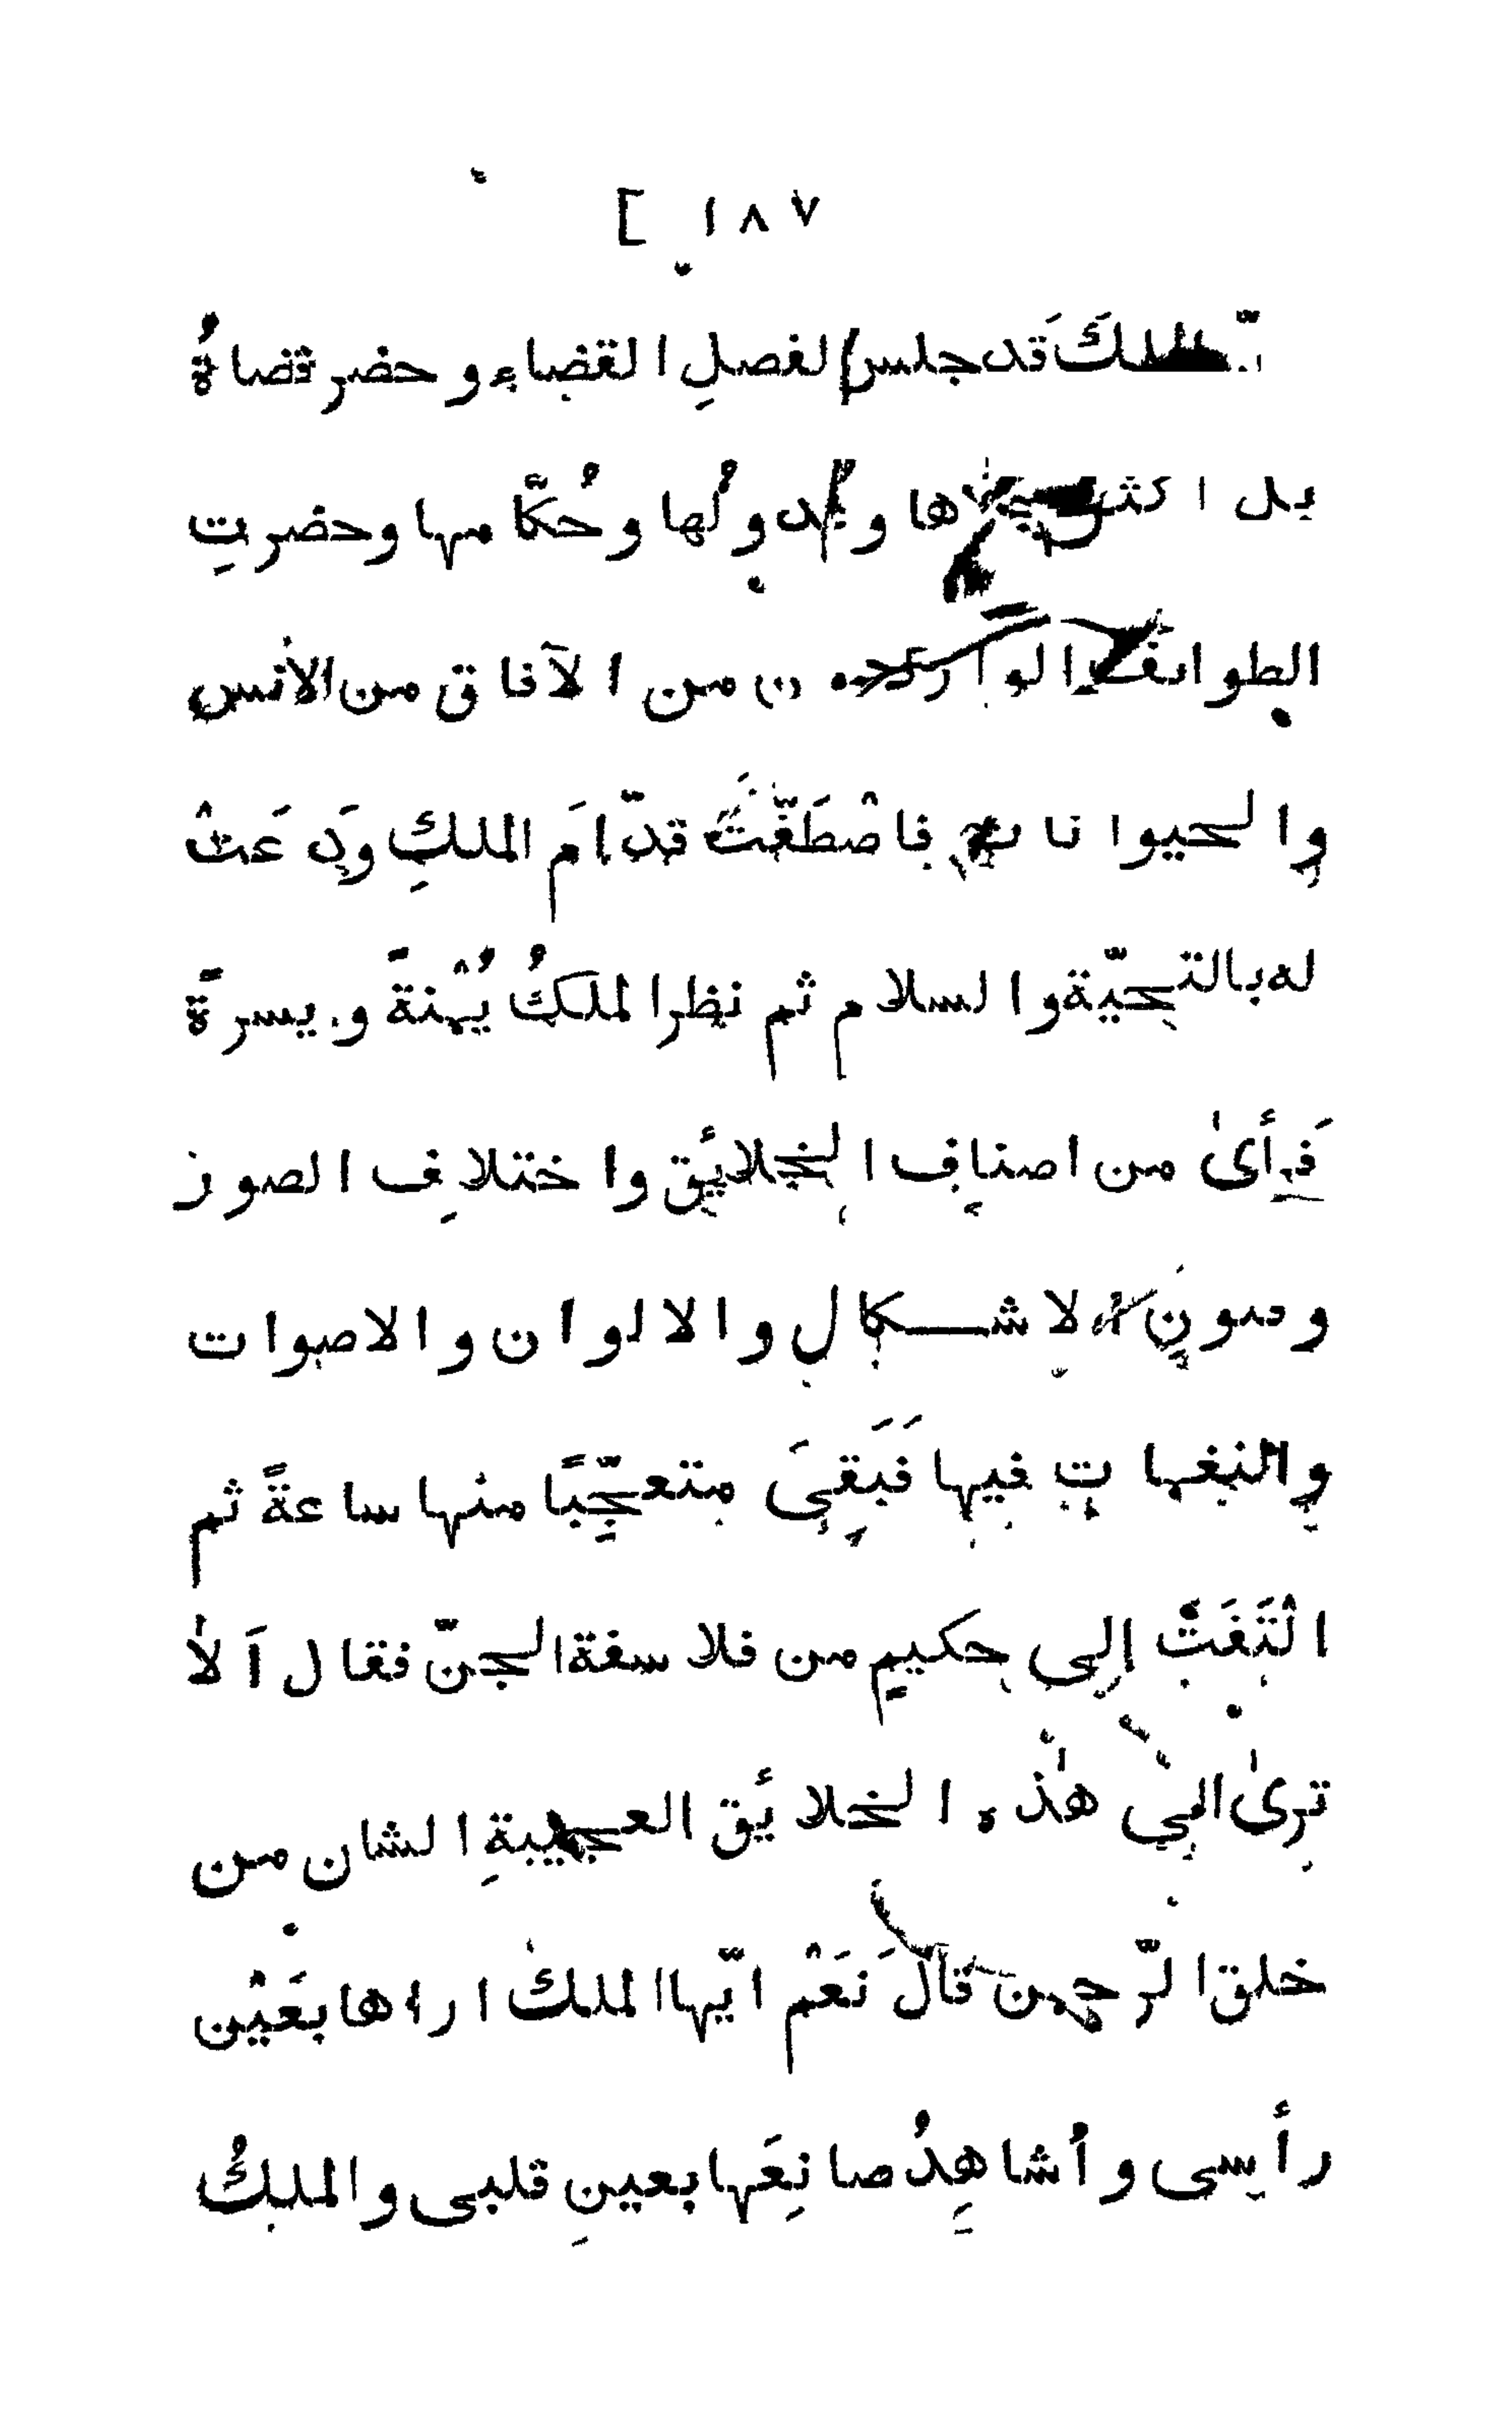 ١٨٧ ]
الملكَ قَد جلس لفصلِ القضاء و حضر قضاةُ
بل اكثر ها و عُدولُها و حُكّامها وحضرتِ
الطوائف الواردون من الآفاق من الأنس
والحيوانات فاصْطَفَّتْ قدّامَ الملكِ ودَعَتْ
له بالتحيّة والسلام ثم نظر الملكُ يُمْنةً ويسرةً
فرَأىٰ من اصنافِ الخلائق واختلافِ الصور
وفنونِ الاشكال والالوان والاصوات
والنغماتِ فيها فَبَقِىَ متعجّبًا منها ساعةً ثم
الْتَفَتَ إلى حكيمٍ من فلاسفة الجنّ فقال اَلاٰ
ترىٰ الى هٰذه الخلائق العجيبةِ الشان من
خلق الرّحمن قالَ نَعَمْ ايّها الملكُ اراها بعَيْن
رأسى و أُشاهِدُ صانِعَها بعينِ قلبى والملكُ